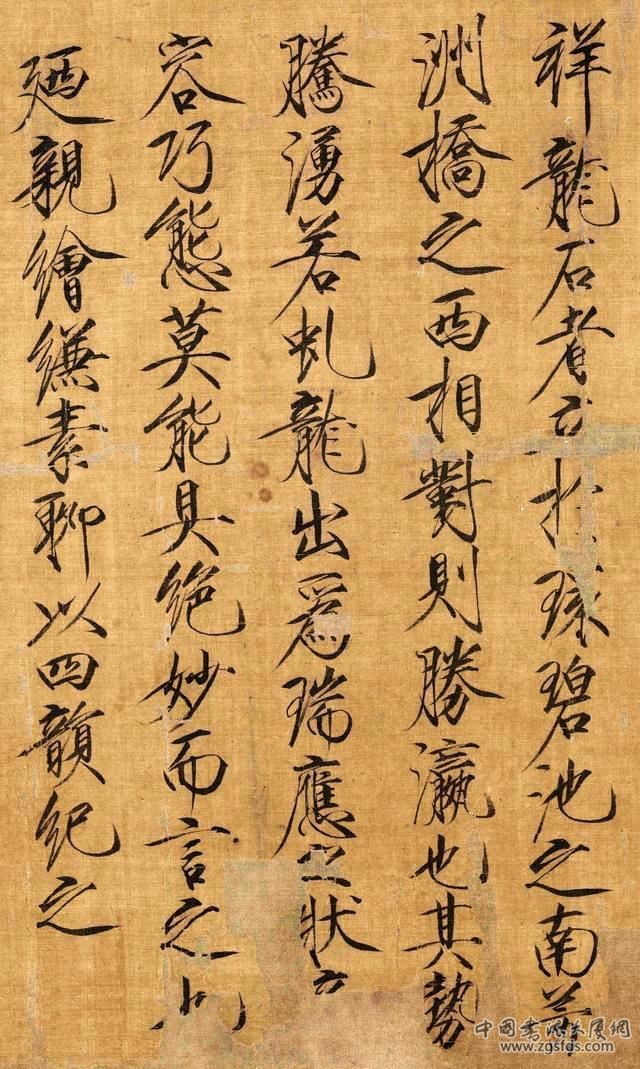 祥龍石者立於環碧池之南芳
洲橋之西相對則勝瀛也其勢
騰湧若虬龍出爲瑞應之狀奇
容巧態莫能具絶妙而言之也
廼親繪縑素聊以四韻紀之
中國書法大厦網
www.zgsfds.com